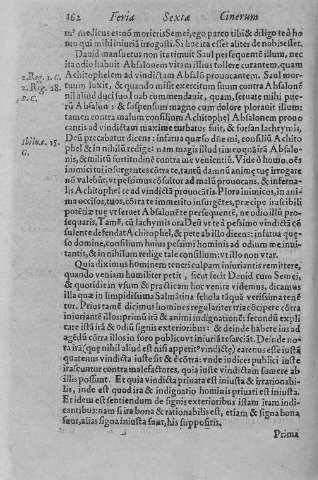 162 Feria Sextæ Cinerum
tu? medicus est? nõ morieris Semei, ego parco tibi & diligo te ã ho
mo qui mihi iniuriã irrogasti. Si hoc ita esset aliter de nobis esset.
David mansuetus non ita timuit Saul persequentem illum, nec
ita odio habuit Absalonem vitam illius tollere curantem, quam
2. Reg. 1. C.
Achitophelem ad vindictam Absalõ provocantem. Saul mor-
2. Reg. 18.
tuum luxit, & quando misit exercitum suum contra Absalonẽ
D. C.
nil aliud duci suo Ioab commendavit, quam, servate mihi pue-
rũ Absalon: & suspensum magno cum dolore ploravit illum:
tamen contra malum consilium Achitophel Absalonem provo
cantis ad vindictam maxime turbatus fuit, & forsan lachrymis,
Ibib. c. 15.
Deũ precabatur dicens: infatua quæso dñe mi, consiliũ Achito
G.
phel & in nihilũ redige: nam magis illud timeo quàm irã Absalo-
nis, & militũ fortitudinẽ contra me venientiũ. Vide ô homo, oẽs
inimici tui insurgentes cõtra te, tanta damna animę tuę irrogare
nõ valebũt,
lis Achitophel ce ad vindictã provocãs. Plora inimicos, in ani-
ma occisos, tuos, cõtra te immerito insurgẽtes, præcipe irascibili
potẽtiæ tuę vt servet Absalonẽ te persequentẽ, ne odio illũ pro-
sequaris. Tamẽ, cũ lachymis ora Deũ vt te à pessimo vindictã cõ
sulente defendat Achitophel, & pete ab illo dicens: infatua quę-
so domine, consilium huius pessimi hominis ad odium me inui-
tantis, & in nihilum redige tale consilium: vt illo non vtar.
Quia diximus hominem teneri culpam iniuriantis remittere,
quando veniam humiliter petit, sicut fecit David cum Semei,
& quotidie in vsum & practicam hoc venire videmus, dicamus
illa quæ in limpidissima Salmãtina schola tãquã verissima tenẽ
tur. Prius tamẽ dicimus homines regulariter tria cõpetere cõtra
iniuriantẽ illos: primũ irã & animi indignationẽ: secundũ expli
care istã irã & odiũ signis exterioribus: & deinde habere ius ad
agẽdũ cõtra illos in foro publico vt iniuriã resarciat. Deinde no-
ta irã (quę nihil aliud est nisi appetitꝰ vindictę) eatenus esse iustã
quatenus vindicta iuste sit & ẽ cõtra: vnde iudices publici iuste
irascuntur contra malefactores, quia iuste vindictam sumere ab
illis possunt. Et quia vindicta privata est iniusta & irrationabi-
lis, inde est quod ira & indignatio hominis privati est iniusta.
Et idem est sentiendum de signis exterioribus istam iram indi-
cantibus: nam si ira bona & rationabilis est, etiam & signa bona
sunt, alias signa iniusta sunt, his suppositis.
Prima